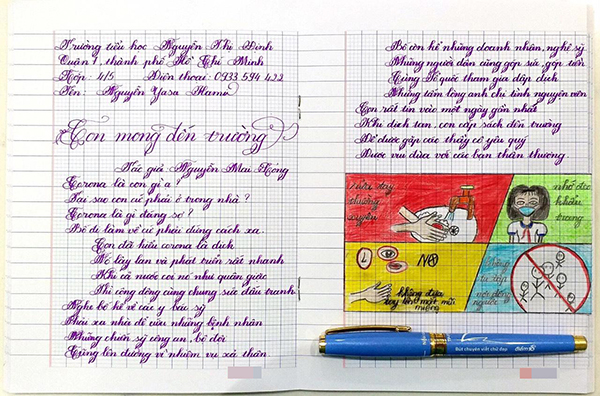 Trường tiểu học Nguyễn Thi Định
Quận 1, thành phố Hồ Chí Minh
Lớp: 4/5 Điện thoại: 0933 594 422
Tên: Nguyễn Yasu Hame
Con mong đến trường
Tác giả Nguyễn Mai Đông
Corona là con gì ạ?
Tại sao con cứ phải ở trong nhà?
Corona là gì đáng sợ?
Để đi làm về cứ phải đứng cách xa.
Con đã hiểu corona là dịch
Nó lây lan và phát triển rất nhanh
Khi cả nước coi nó như quân giặc
Thì cộng đồng cùng chung sức đấu tranh
Nghe bố kể về các y bác sỹ
Phải xa nhà để cứu những bệnh nhân
Những chiến sỹ công an, bộ đội
Cũng lên đường vì nhiệm vụ xả thân.
Bố còn kể những doanh nhân, nghệ sỹ
Những người dân cùng góp sức, góp tiền
Cùng Tổ quốc tham gia dập dịch
Những tấm lòng anh chị tình nguyện viên
Con rất tin vào một ngày gần nhất
Khi dịch tan, con cắp sách đến trường
Để được gặp các thầy cô yêu quý
Được vui đùa với các bạn thân thương
rửa tay
thường
xuyên
nhớ đeo
khẩu
trang
NO
không đưa
tay lên mắt mũi
miệng
tụ tập
đông
người
Bút chuyên viết chữ đẹp